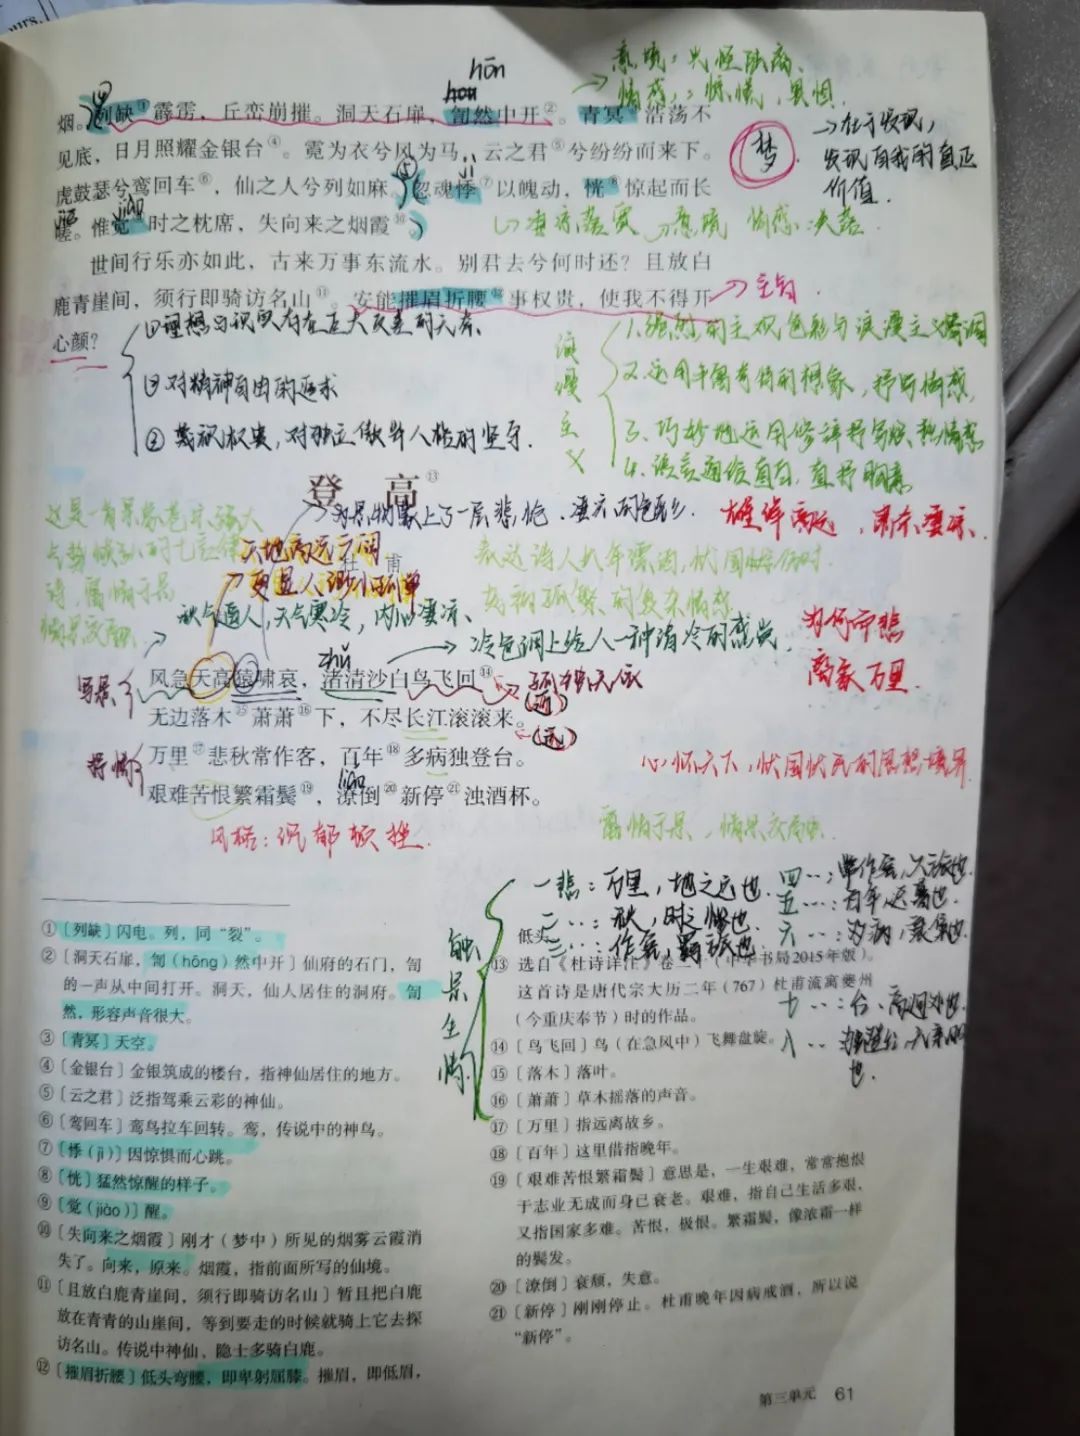 ours.
hōn
意境:
情感:
恐惧.
烟。列缺①霹雳，丘峦崩摧。洞天石扉，訇然中开②。青冥③浩荡不
见底，日月照耀金银台④。霓为衣兮风为马，云之君⑤兮纷纷而来下。
梦
→在于发现，
发现自我的真正
价值.
虎鼓瑟兮鸾回车⑥，仙之人兮列如麻。忽魂悸⑦以魄动，恍⑧惊起而长
jì
嗟。惟觉⑨时之枕席，失向来之烟霞⑩。
jiē
jiào
意境 情感:失落
世间行乐亦如此，古来万事东流水。别君去兮何时还？且放白
鹿青崖间，须行即骑访名山⑪。安能摧眉折腰⑫事权贵，使我不得开
→主旨.
心颜？
①理想与现实存在巨大反差的无奈.
②对精神自由的追求
③蔑视权贵,对独立傲岸人格的坚守.
浪漫主义
1.强烈的主观色彩与浪漫主义情调
2.运用丰富奇特的想象,抒写情感,
3.巧妙地运用修辞抒写炽热情感
4.语言通俗直白,直抒胸臆
登 高⑬
→为景物蒙上了一层悲怆、凄凉的色彩.
雄浑高远,肃杀凄凉.
这是一首景象苍凉阔大
气势恢弘的七言律
诗,寓情于景
情景交融.
天地高远空阔
→更显人渺小孤单
杜 甫
表达诗人长年漂泊,忧国伤时
孤愁的复杂情感
秋气逼人,天气寒冷,内心凄凉.
→冷色调上给人一种清冷的感觉.
为何而悲
离家万里.
zhǔ
写景
风急天高猿啸哀，渚清沙白鸟飞回⑭。
→孤独无依
(近)
无边落木⑮萧萧⑯下，不尽长江滚滚来。
(远)
抒情
万里⑰悲秋常作客，百年⑱多病独登台。
心怀天下,忧国忧民的思想境界.
liáo
艰难苦恨繁霜鬓⑲，潦倒⑳新停㉑浊酒杯。
风格:沉郁顿挫.
寓情于景,情景交融.
触景生情
一悲:万里,地之远也.
二‥:秋,时之惨也
三‥:作客,羁旅也.
四‥:常作客,久旅也.
五‥:百年,迟暮也.
六‥:多病,衰疾也.
七‥:台,高迥处也.
八‥:独登台,无亲朋
也.
①〔列缺〕闪电。列，同“裂”。
②〔洞天石扉，訇（hōng）然中开〕仙府的石门，訇
的一声从中间打开。洞天，仙人居住的洞府。訇
然，形容声音很大。
③〔青冥〕天空。
④〔金银台〕金银筑成的楼台，指神仙居住的地方。
⑤〔云之君〕泛指驾乘云彩的神仙。
⑥〔鸾回车〕鸾鸟拉车回转。鸾，传说中的神鸟。
⑦〔悸（jì）〕因惊惧而心跳。
⑧〔恍〕猛然惊醒的样子。
⑨〔觉（jiào）〕醒。
⑩〔失向来之烟霞〕刚才（梦中）所见的烟雾云霞消
失了。向来，原来。烟霞，指前面所写的仙境。
⑪〔且放白鹿青崖间，须行即骑访名山〕暂且把白鹿
放在青青的山崖间，等到要走的时候就骑上它去探
访名山。传说中神仙、隐士多骑白鹿。
⑫〔摧眉折腰〕低头弯腰，即卑躬屈膝。摧眉，即低眉，
低头。
⑬选自《杜诗详注》卷二十（中华书局2015年版）。
这首诗是唐代宗大历二年（767）杜甫流离夔州
（今重庆奉节）时的作品。
⑭〔鸟飞回〕鸟（在急风中）飞舞盘旋。
⑮〔落木〕落叶。
⑯〔萧萧〕草木摇落的声音。
⑰〔万里〕指远离故乡。
⑱〔百年〕这里借指晚年。
⑲〔艰难苦恨繁霜鬓〕意思是，一生艰难，常常抱恨
于志业无成而身已衰老。艰难，指自己生活多艰，
又指国家多难。苦恨，极恨。繁霜鬓，像浓霜一样
的鬓发。
⑳〔潦倒〕衰颓，失意。
㉑〔新停〕刚刚停止。杜甫晚年因病戒酒，所以说
“新停”。
第三单元 61